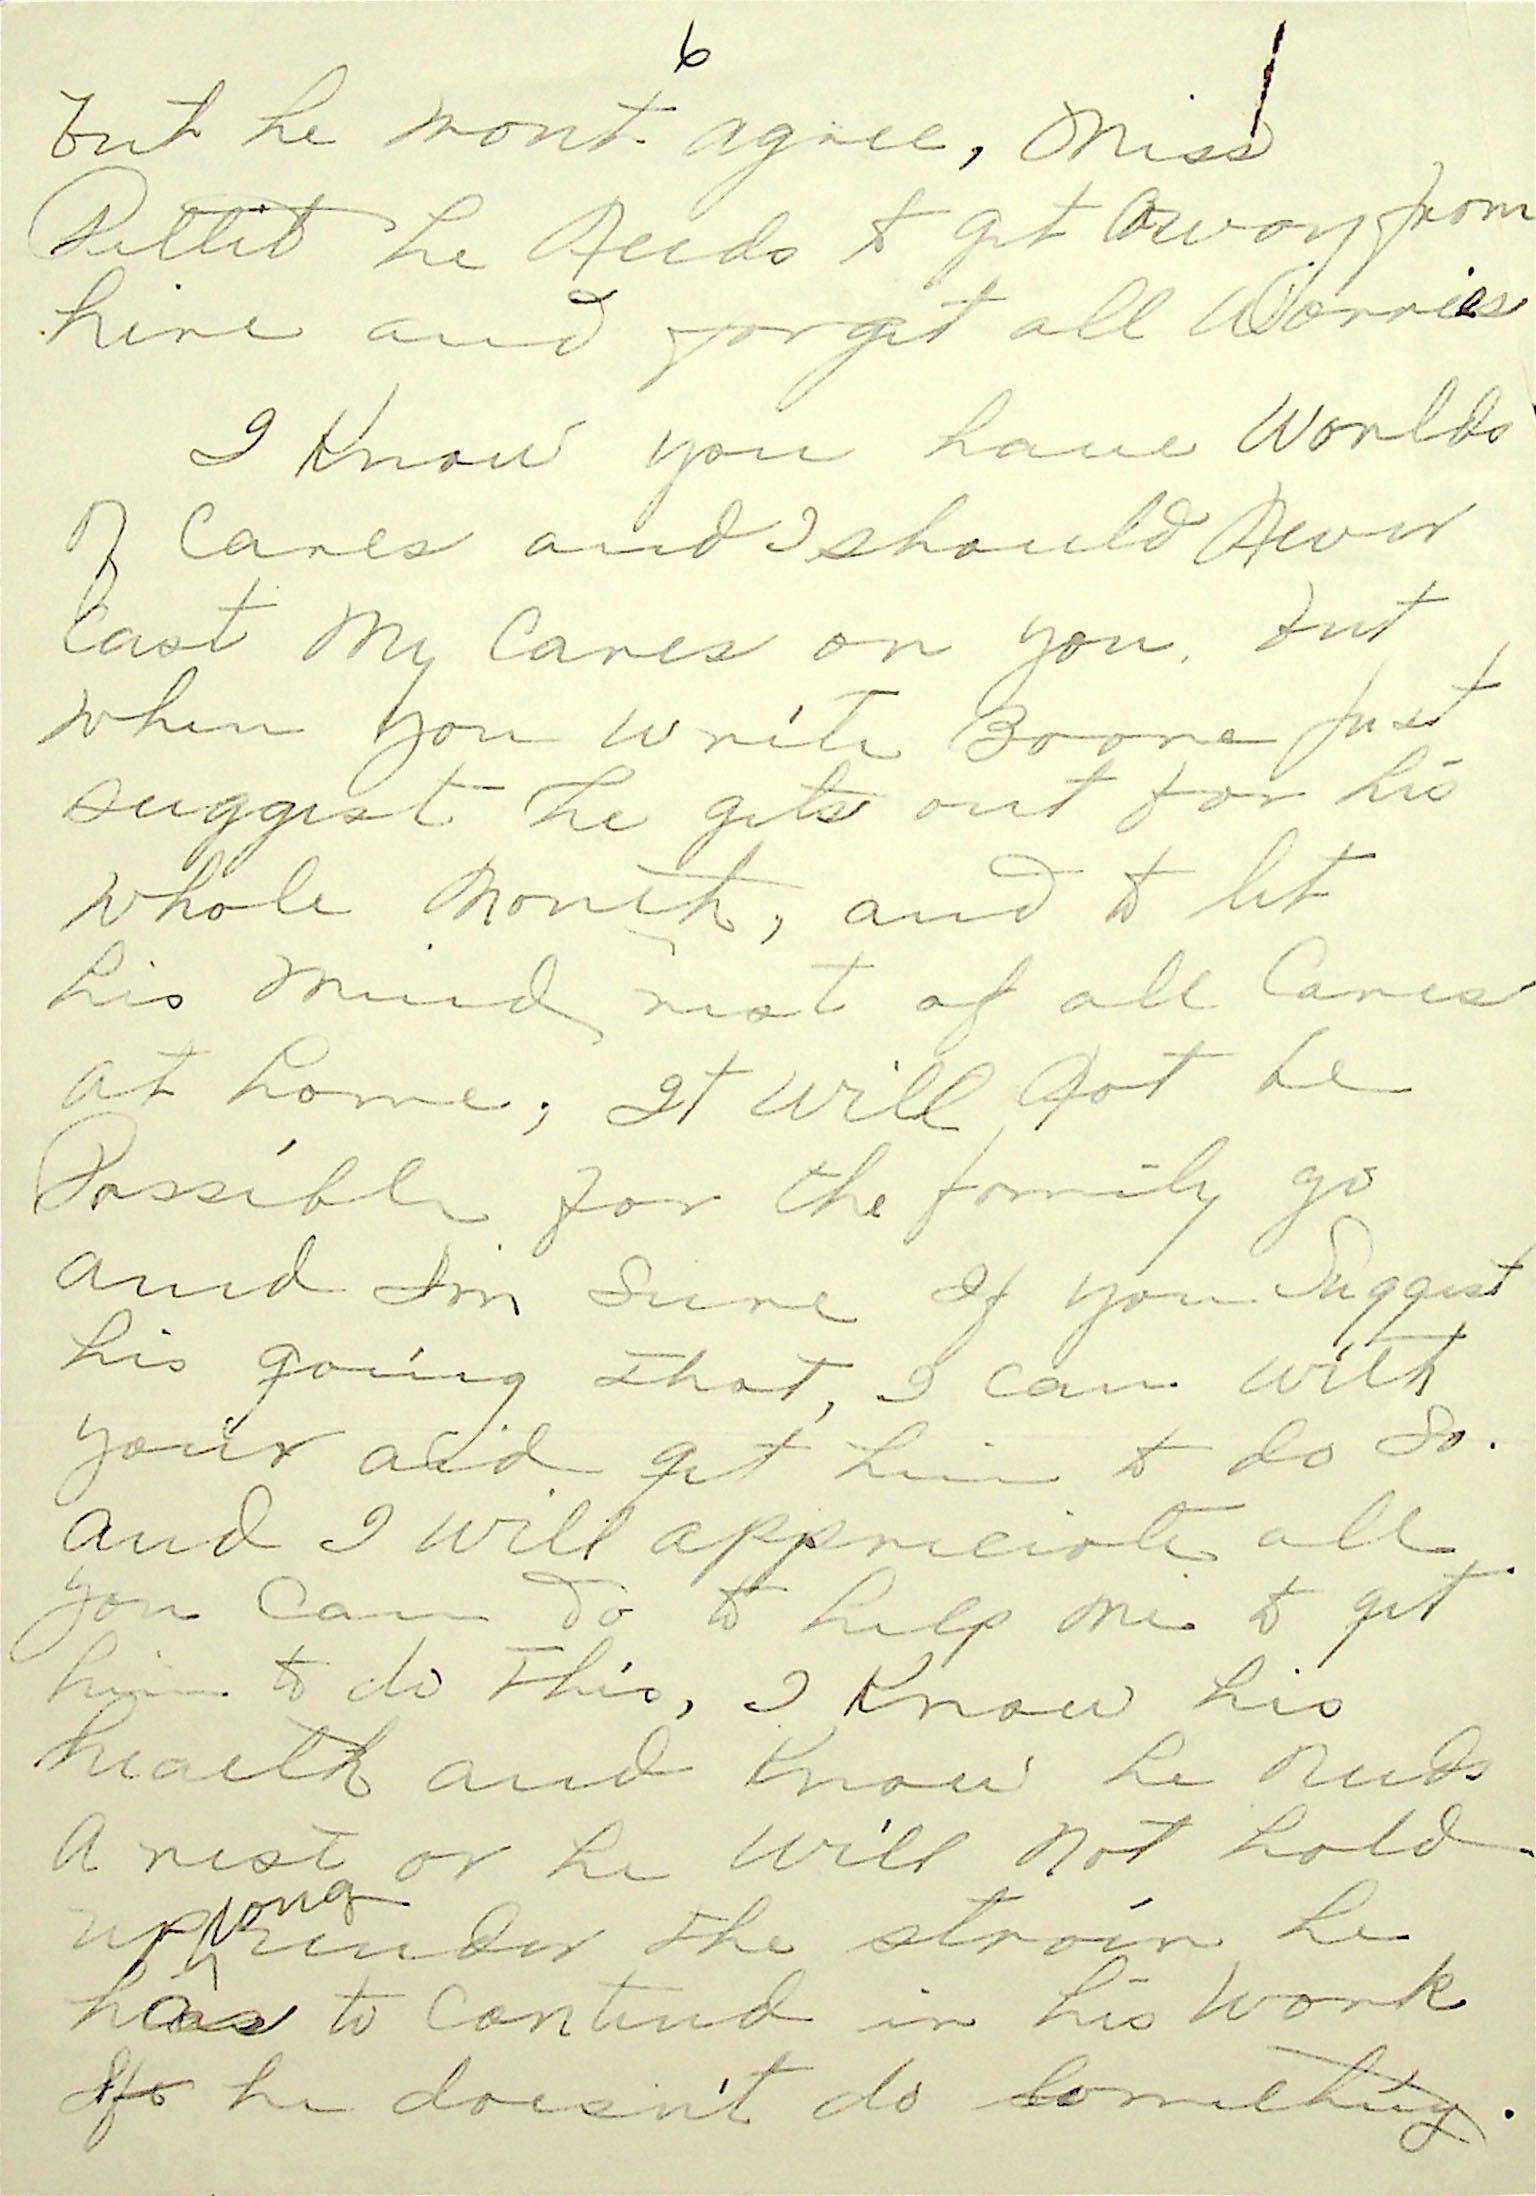 6
but he wont agree, Miss
Pettit he Needs to get away from
here and forget all Worries
I Know you have Worlds
of Cares and I should Never
Cast My Cares on you. but
when you write Boone just
suggest he gets out for his
whole Month, and to let
his Mind rest of all Cares
at home, It will Not be
Possible for the family go
and I'm Sure If you Suggest
his going that, I can with
your aid get him to do So.
and I will appreciate all
you can do to help me to get
him to do this, I Know his
health and Know he needs
A rest or he will not hold
up long under the strain he
has to Contend in his Work
If he doesn't do something.